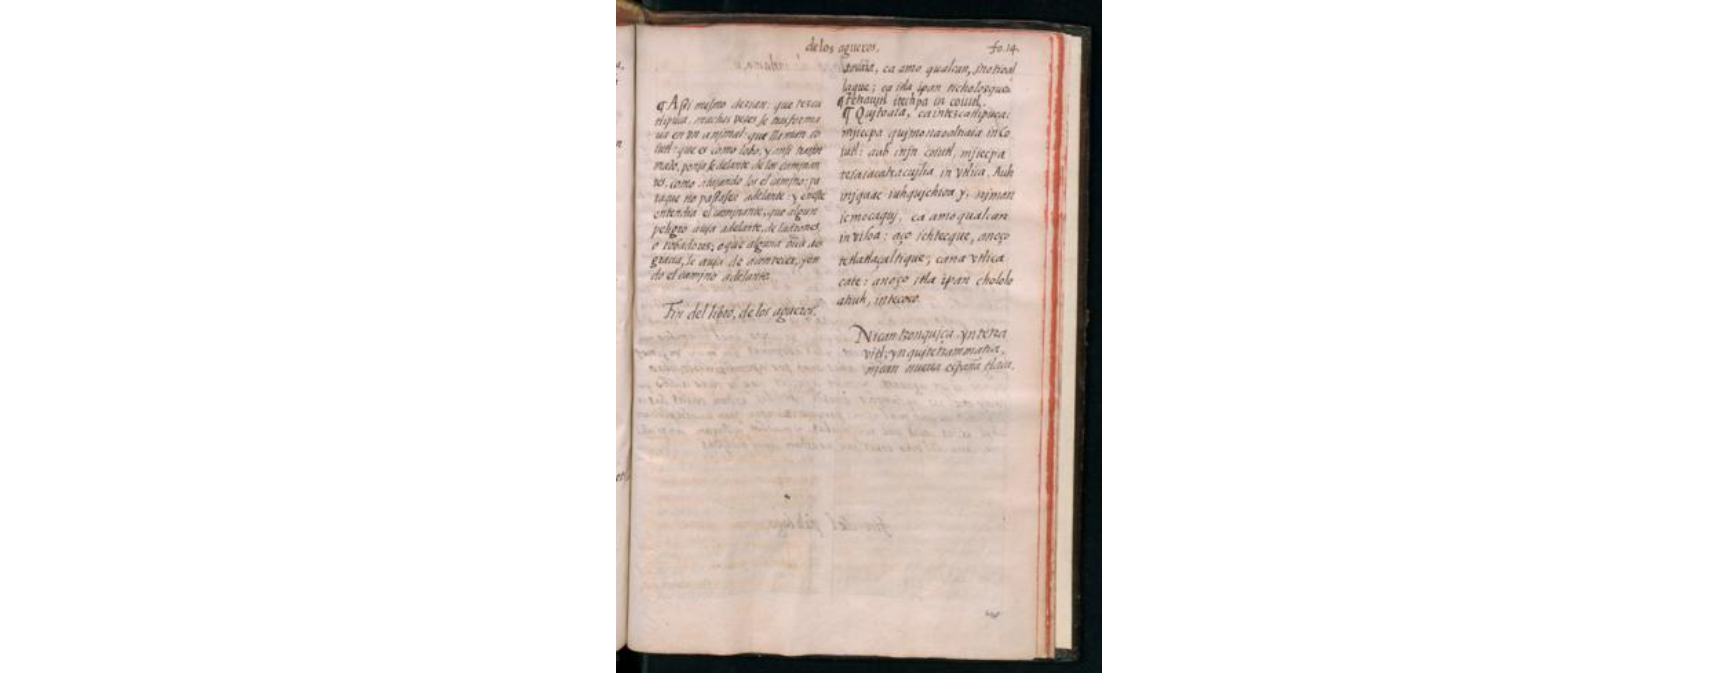 de los agueros.
fo. 14.
¶ Assi mesmo dezian: que tezca
tlipuca, muchas vezes se trasforma
ua en vn animal: que llaman co
iutl: que es como lobo, y ansi trasfor
mado, poniase delante de los caminan
tes, como atajando los el camjno: pa
raque no passasen adelante: y en este
entendia el caminante, que algun
peligro auja adelante, de ladrones,
o robadores: o que alguna otra des
gracia, le auja de acontecer, yen
do el camjno adelante.
Fin del libro, de los agueros.
ca amo qualcan, in otioal
laque; ca itla ipan tichologque.
¶ Tetzaujtl itechpa in coiutl.
¶ Qujtoaia, ca in tezcatlipuca:
mjiecpa qujmonaoaltiaia in co
iutl: auh injn coiutl, mjiecpa
teiaiacatzacujlia in vtlica. Auh
injquac iuhqujchioa y, njman
ic mocaquj, ca amo qualcan
in viloa: aço ichtecque, anoço
tetlatlaçaltique, cana vtlica
cate: anoço itla ipan chololo
atiuh, in tecoco.
Nican tzonquiça, yn tetza
vitl, yn quitetzammatia,
njcan nueua españa tlaca.